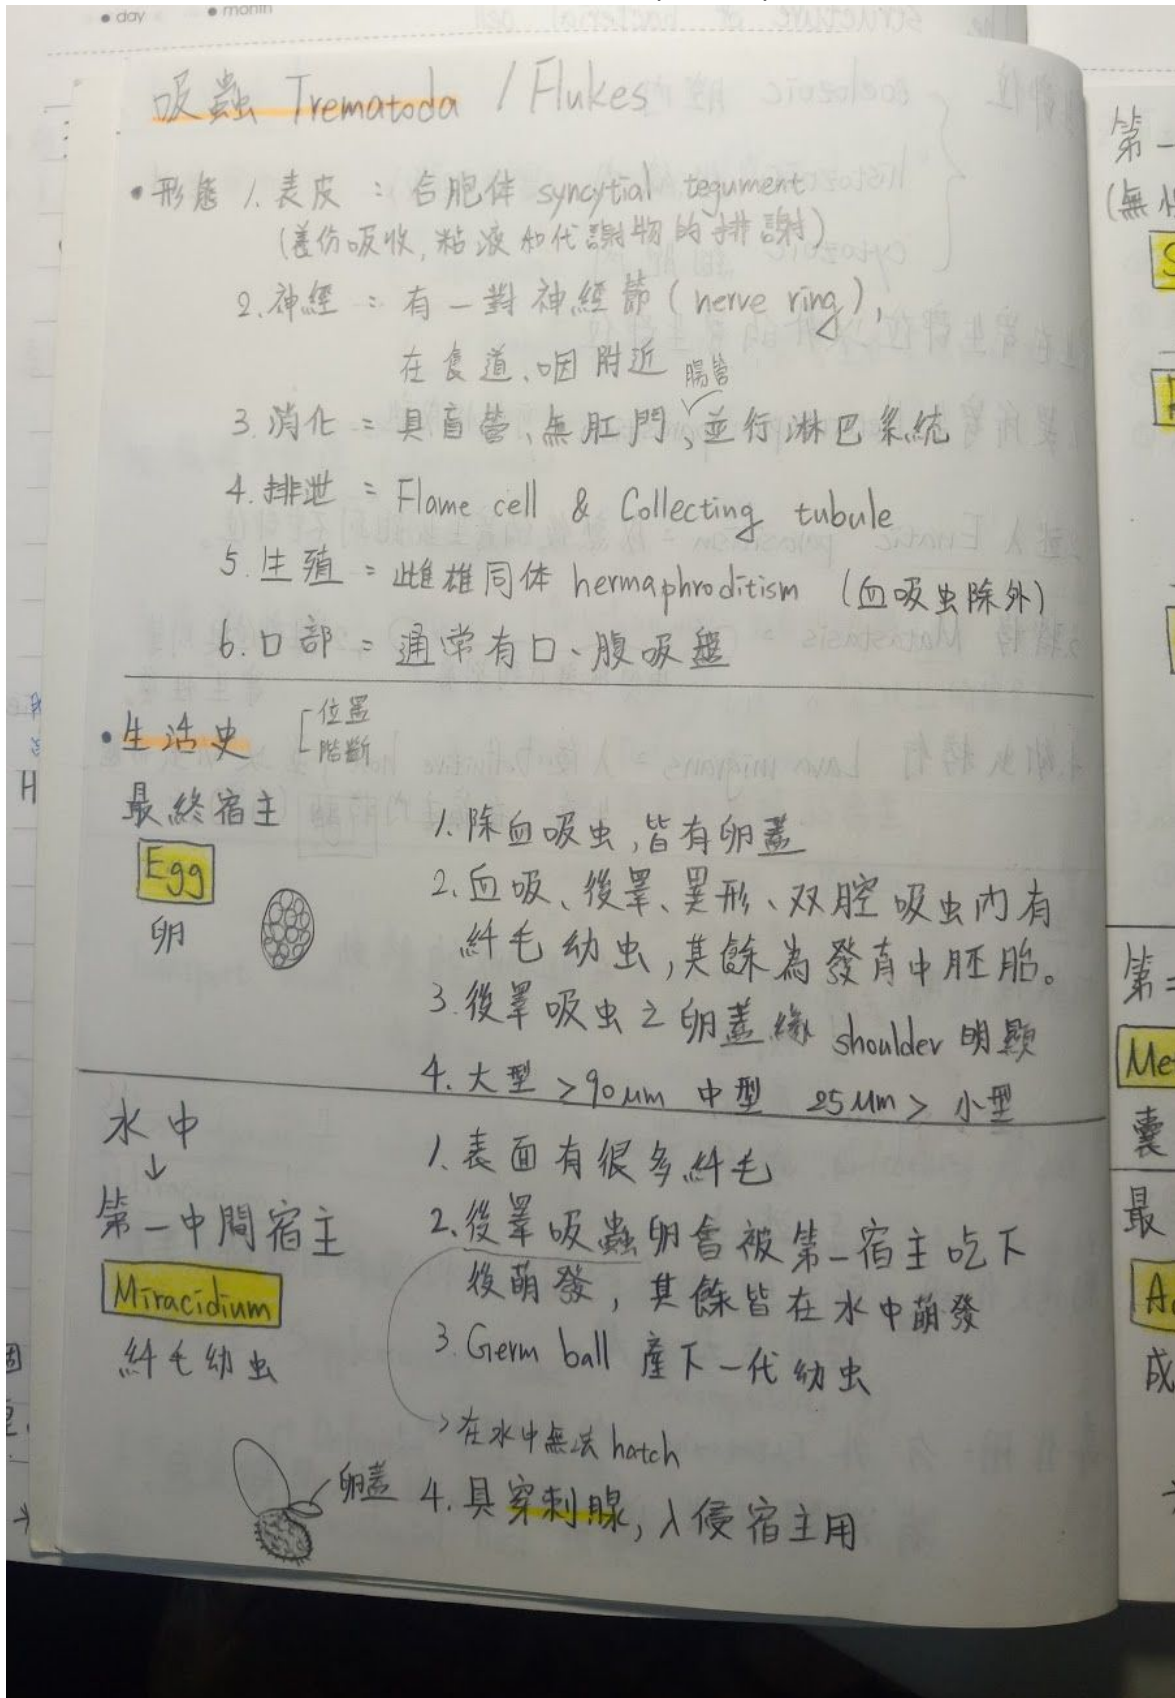 • day • month
吸蟲 Trematoda / Flukes
• 形態 1. 表皮 : 合胞体 syncytial tegument
(養份吸收, 粘液和代謝物的排謝)
2. 神經 : 有一對神經節 (nerve ring),
在食道、咽附近
腸管
3. 消化 = 具盲管、無肛門、並行淋巴系統
4. 排泄 = Flame cell & Collecting tubule
5. 生殖 = 雌雄同体 hermaphroditism (血吸虫除外)
6. 口部 = 通常有口、腹吸盤
• 生活史
位置
階斷
最終宿主
Egg
卵
1. 除血吸虫, 皆有卵蓋
2. 血吸、後睪、異形、双腔吸虫內有
纤毛幼虫, 其餘為發育中胚胎。
3. 後睪吸虫之卵蓋緣 shoulder 明顯
4. 大型 > 90 μm 中型 25 μm > 小型
水中
↓
第一中間宿主
Miracidium
纤毛幼虫
1. 表面有很多纤毛
2. 後睪吸蟲卵會被第一宿主吃下
後萌發, 其餘皆在水中萌發
3. Germ ball 產下一代幼虫
→ 在水中無法 hatch
卵蓋
4. 具穿刺腺, 入侵宿主用
第一
(無
第二
Me
囊
最
A
成